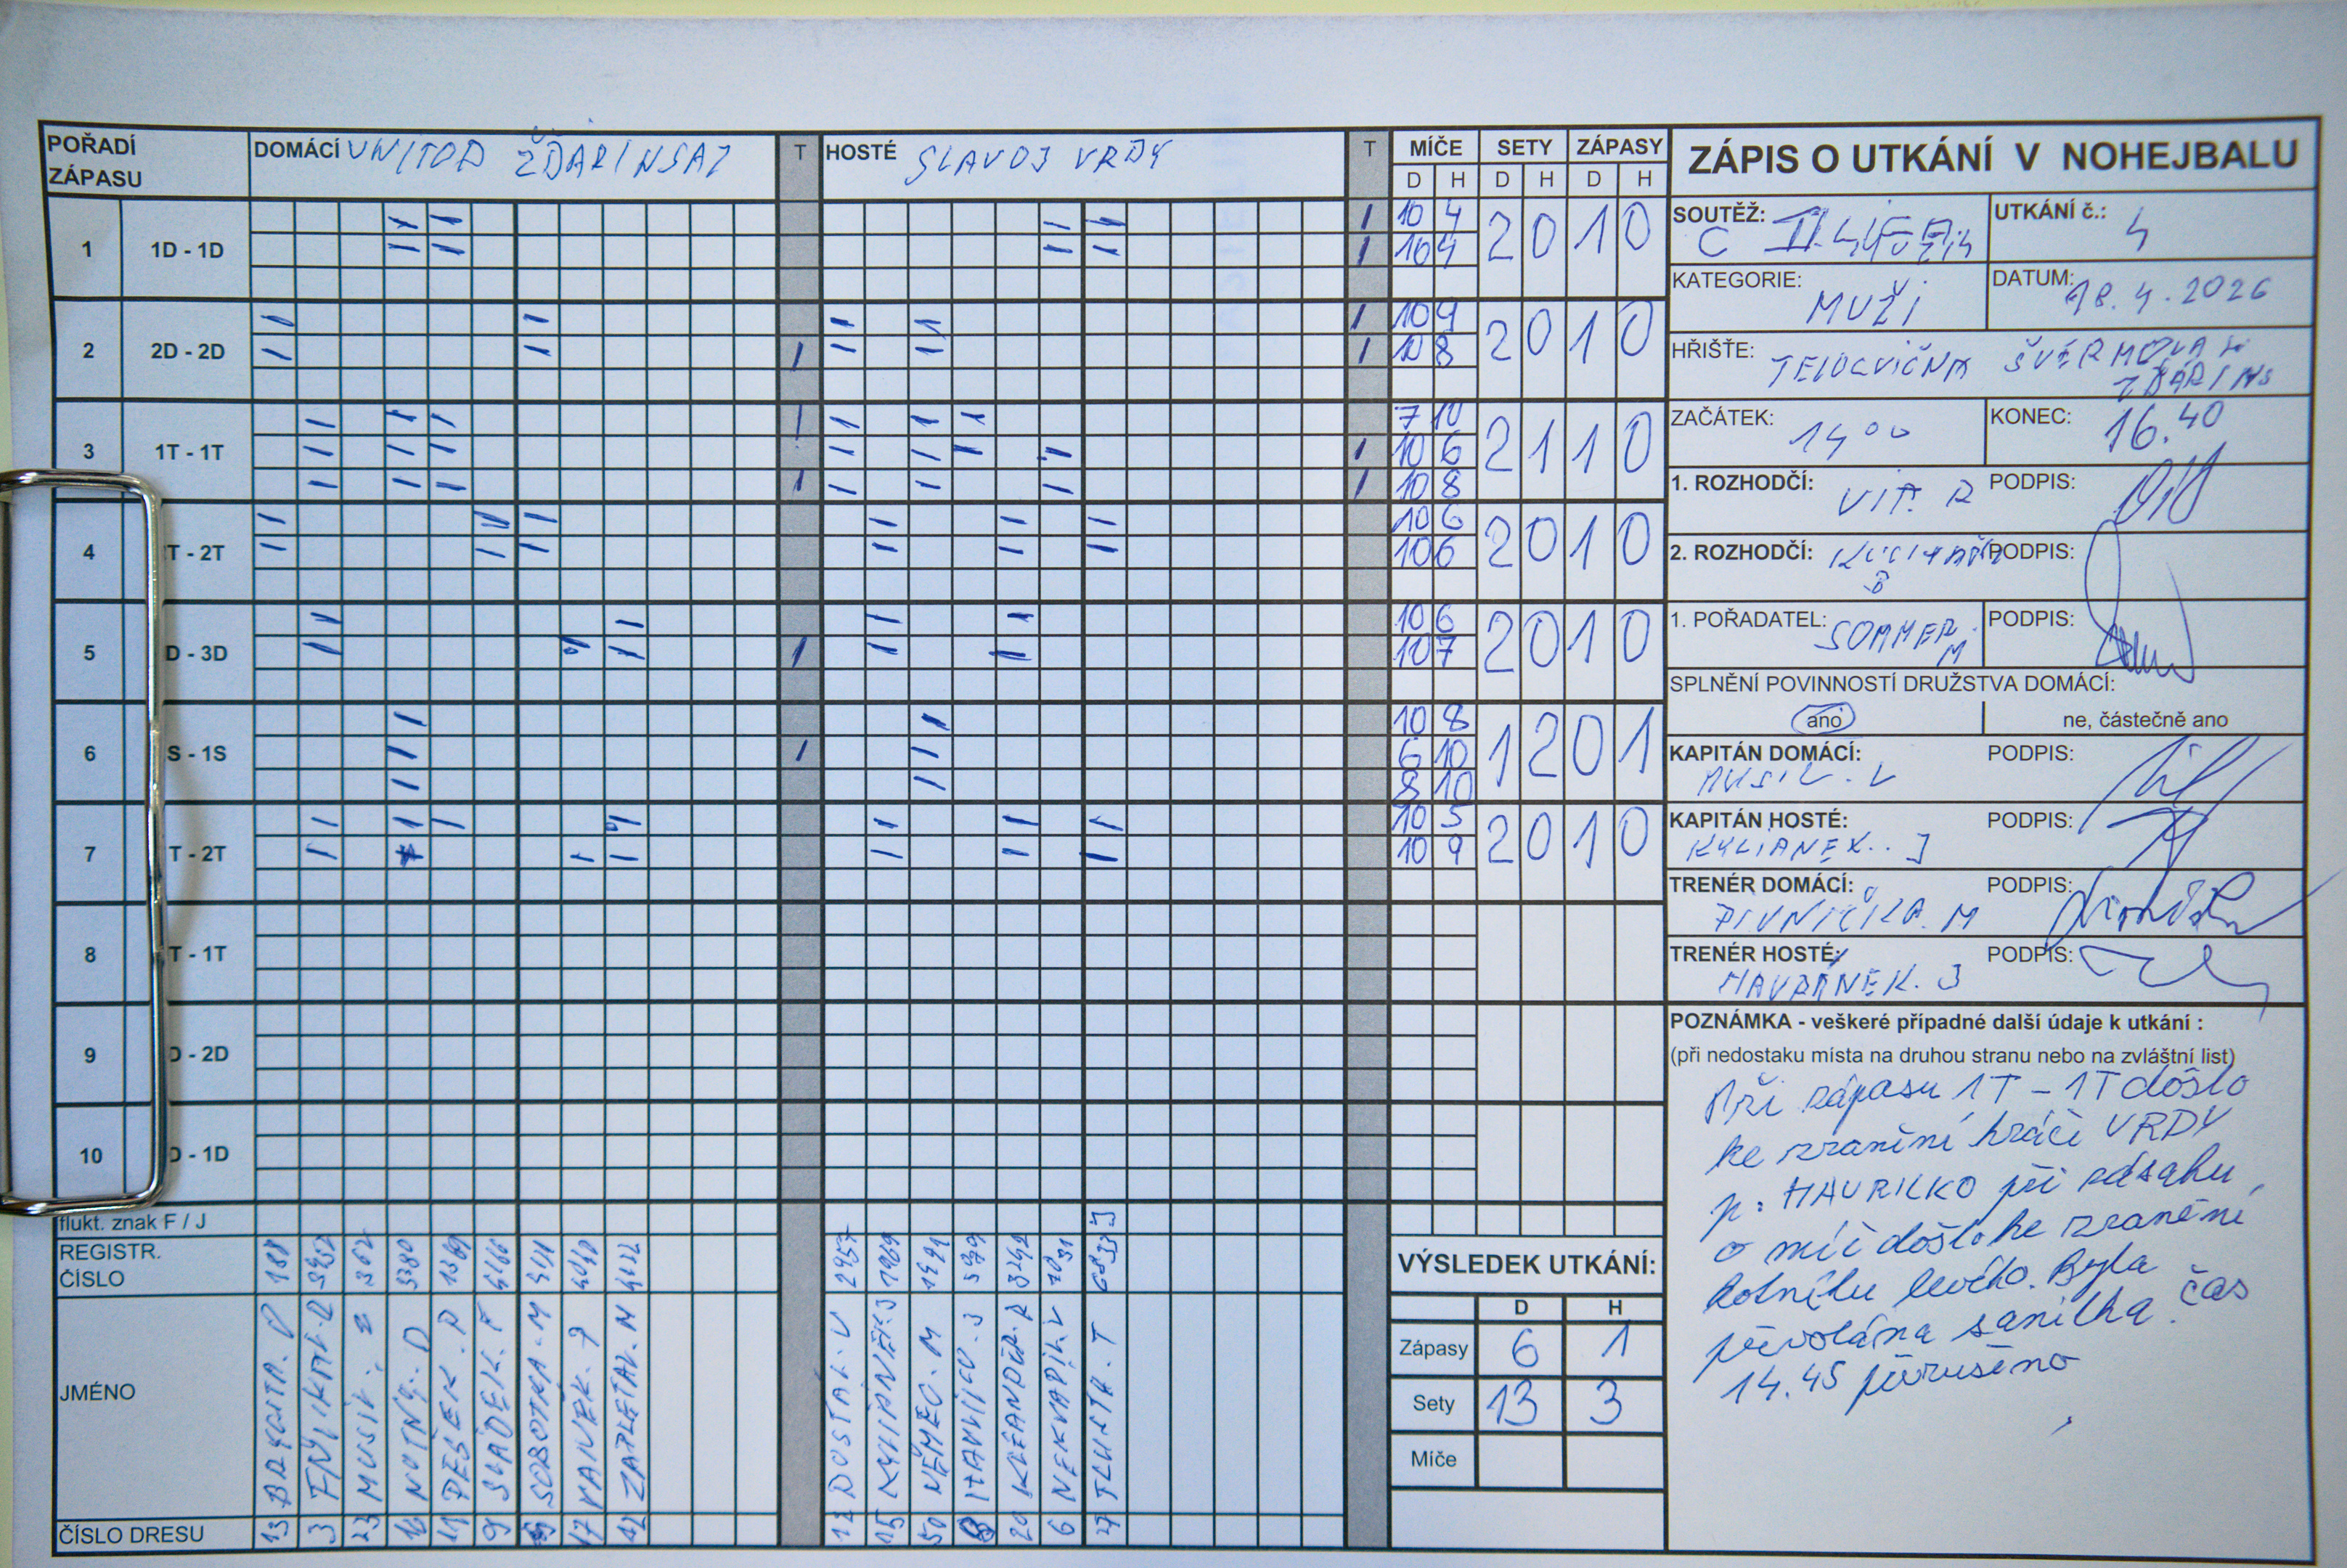 POŘADÍ ZÁPASU
DOMÁCÍ UNITOP ŽĎÁR N SAZ
T
HOSTÉ SLAVOJ VRDY
T
MÍČE SETY ZÁPASY
D H D H D H
ZÁPIS O UTKÁNÍ V NOHEJBALU
1 1D - 1D
10 4
10 4
2 0 1 0
2 2D - 2D
10 4
10 8
2 0 1 0
3 1T - 1T
7 10
10 6
10 8
2 1 1 0
4 T - 2T
10 6
10 6
2 0 1 0
5 D - 3D
10 6
10 7
2 0 1 0
6 S - 1S
10 8
6 10
8 10
1 2 0 1
7 T - 2T
10 5
10 9
2 0 1 0
8 T - 1T
9 D - 2D
10 D - 1D
flukt. znak F / J
J
REGISTR. ČÍSLO
188 362 1369 2957 1969
JMÉNO
MUSIL NOTNÝ. D PEŠEK. P SLÁDEK. F SOBOTKA. M VANĚK. ZAPLETAL. M
DOSTÁL. V KYLIÁNEK. J NĚMEC. M NEKVAPIL. V TLUSTÁ. T
ČÍSLO DRESU
13 3 23 16 9 17 12 15 50 20 6 27
SOUTĚŽ: C II. LIGA
UTKÁNÍ č.: 4
KATEGORIE: MUŽI
DATUM: 18.4.2026
HŘIŠTĚ: TELOCVIČNA ŠVERMOVA
ZAČÁTEK: 14 00
KONEC: 16.40
1. ROZHODČÍ: VIT. R PODPIS:
2. ROZHODČÍ: B PODPIS:
1. POŘADATEL: SOMMER. M PODPIS:
SPLNĚNÍ POVINNOSTÍ DRUŽSTVA DOMÁCÍ:
ano ne, částečně ano
KAPITÁN DOMÁCÍ: PODPIS:
MUSIL. V
KAPITÁN HOSTÉ: PODPIS:
KYLIÁNEK. J
TRENÉR DOMÁCÍ: PODPIS:
PIVNIČKA. M
TRENÉR HOSTÉ: PODPIS:
HAVRÁNEK. J
POZNÁMKA - veškeré případné další údaje k utkání :
(při nedostaku místa na druhou stranu nebo na zvláštní list)
Při zápasu 1T - 1T došlo
ke zranění hráče VRDY
p. HAVRILKO při zásahu
o míč došlo ke zranění
kotníku levého. Byla
přivolána sanitka. čas
14.45 přerušeno
VÝSLEDEK UTKÁNÍ:
D H
Zápasy 6 1
Sety 13 3
Míče